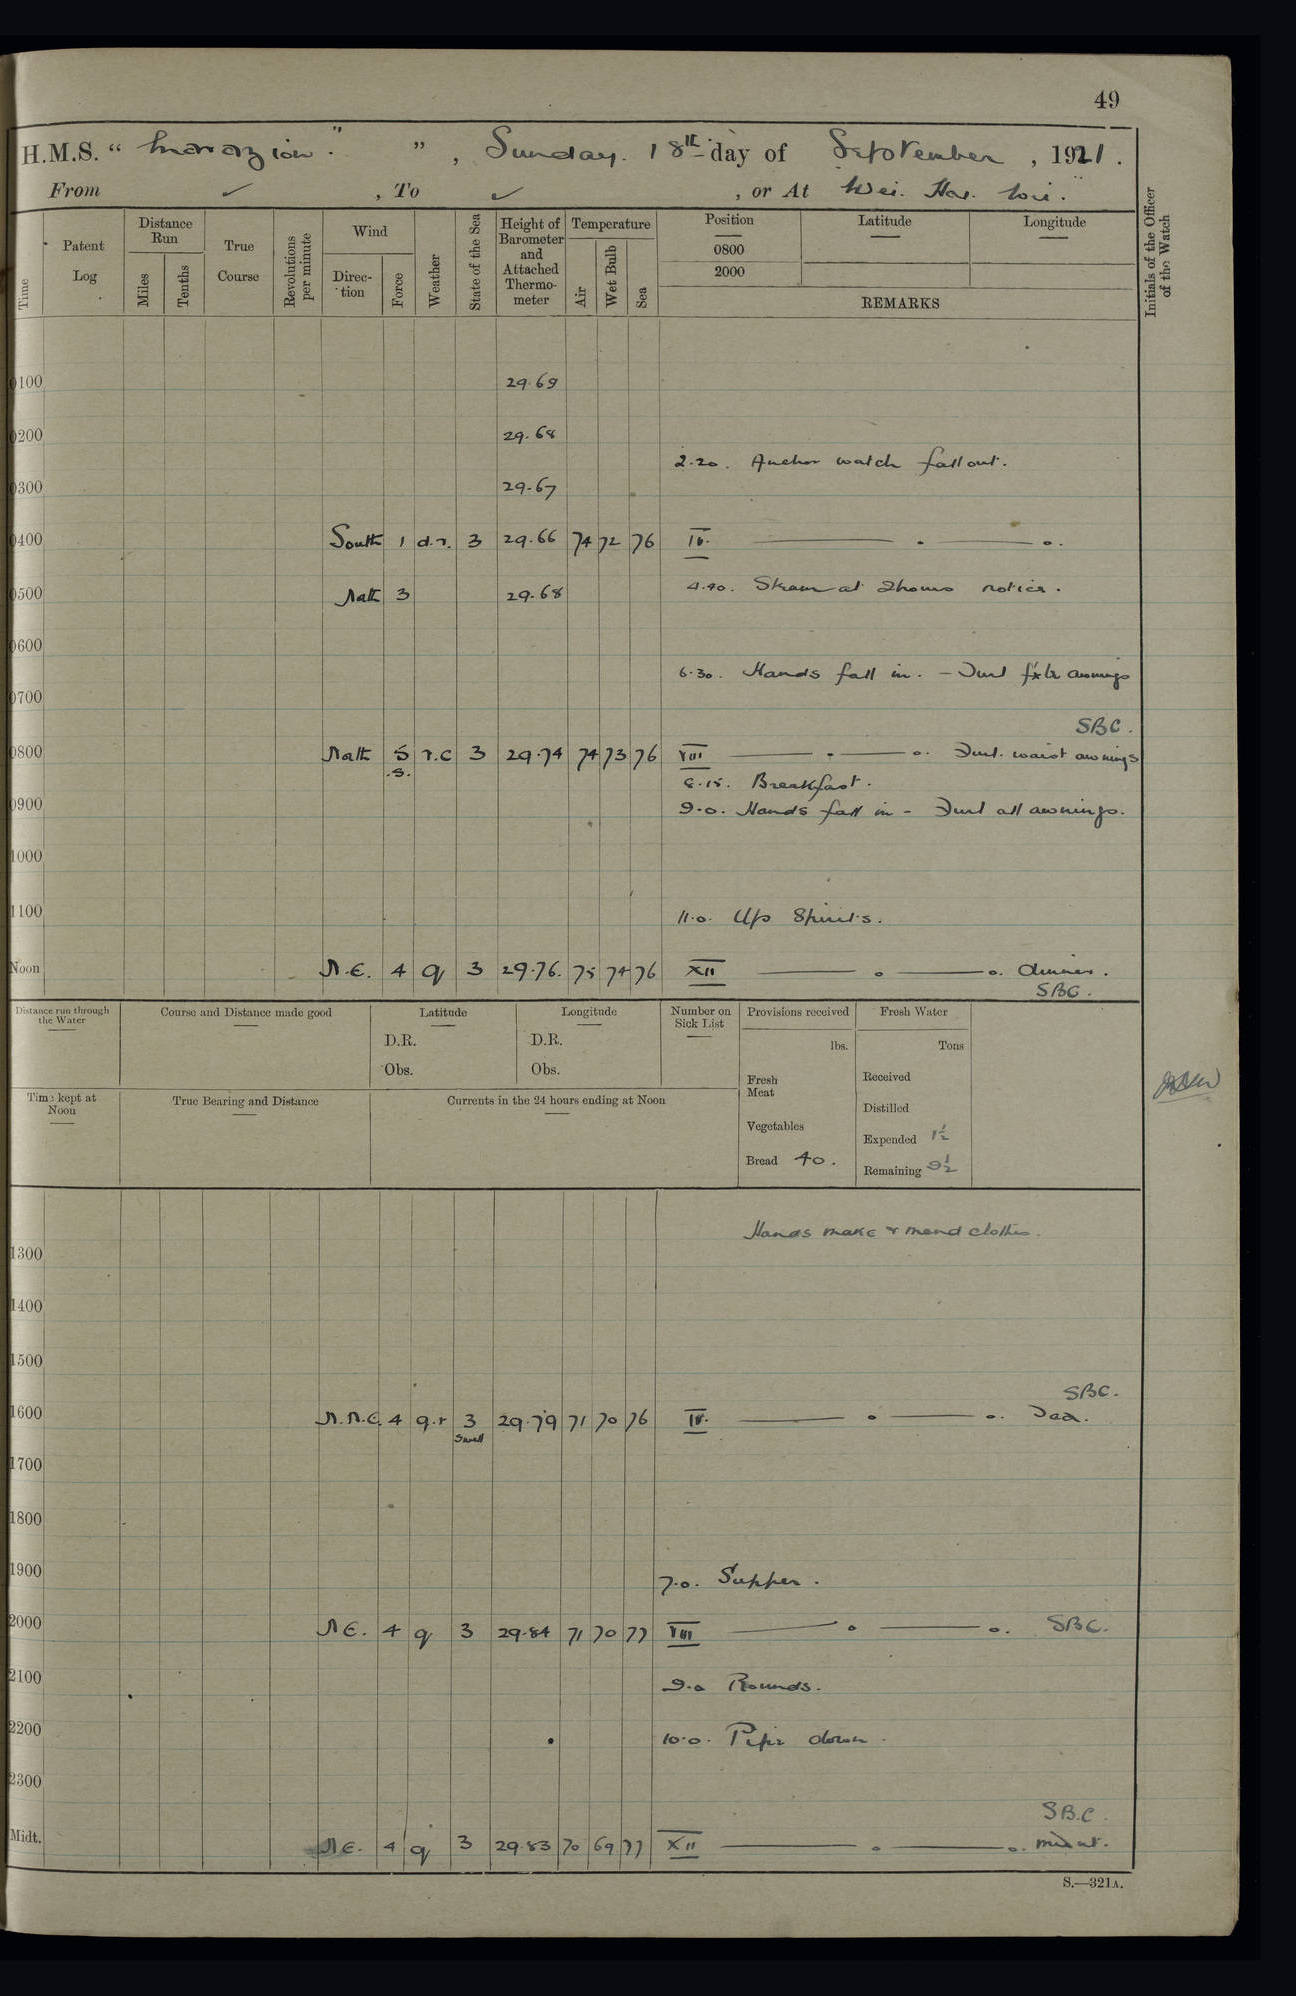 49
H.M.S. “ Marazion. ” , Sunday. 18th day of September , 1921 .
From ✓ , To ✓ , or At Wei. Hai. Wei.
Time
Patent Log
Distance Run
Miles
Tenths
True Course
Revolutions per minute
Wind
Direc-tion
Force
Weather
State of the Sea
Height of Barometer and Attached Thermo-meter
Temperature
Air
Wet Bulb
Sea
Position
0800
2000
Latitude
Longitude
REMARKS
Initials of the Officer of the Watch
0100 29.69
0200 29.68
2.20. Anchor watch fall out.
0300 29.67
0400 South 1 d.r. 3 29.66 74 72 76 IV.
4.40. Steam at 2 hours notice.
0500 North 3 29.68
0600
6.30. Hands fall in. - Furl fxle awnings
0700
SBC.
0800 North 5 r.c 3 29.74 74 73 76 VIII Furl. waist awnings
.S.
8.15. Breakfast.
0900 9.0. Hands fall in - Furl all awnings.
1000
1100 11.0. Up Spirits.
Noon N.E. 4 q 3 29.76. 75 74 76 XII dinner.
SBC.
Distance run through the Water
Course and Distance made good
Latitude
D.R.
Obs.
Longitude
D.R.
Obs.
Number on Sick List
Provisions received
lbs.
Fresh Meat
Vegetables
Bread 40.
Fresh Water
Tons
Received
Distilled
Expended 1½
Remaining 9½
Time kept at Noon
True Bearing and Distance
Currents in the 24 hours ending at Noon
Hands make & mend clothes.
1300
1400
1500
SBC.
1600 N.N.E. 4 q.r 3 29.79 71 70 76 IV. Tea.
Swell
1700
1800
1900 7.0. Supper.
2000 NE. 4 q 3 29.84 71 70 77 VIII SBC.
2100 9.0 Rounds.
2200 10.0. Pipe down.
2300
SBC.
Midt. NE. 4 q 3 29.83 70 69 77 XII
S.—321A.